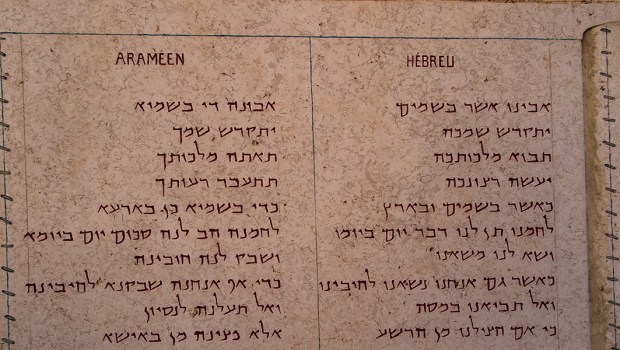 ARAMÉEN
אבונה די בשמיא
יתקדש שמך
תאתה מלכותך
תתעבד רעותך
כדי בשמיא כן בארעא
לחמנה הב לנה סכום יום ביומא
ושבק לנה חובינה
כדי אף אנחנה שבקנא לחיבינה
ואל תעלנה לנסיון
אלא פצינה מן באישא
HÉBREU
אבינו אשר בשמים
יתקדש שמכה
תבוא מלכותכה
יעשה רצונכה
כאשר בשמים ובארץ
לחמנו תן לנו דבר יום ביומו
ושא לנו
כאשר גם אנחנו נשאנו לחיבינו
ואל תביאנו במסה
כי אם הצילנו מן הרשע